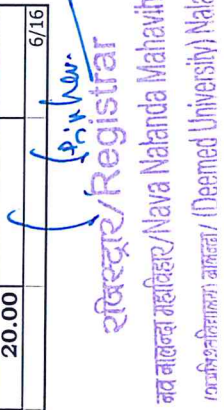 20.00
6/16
रजिस्ट्रार/Registrar
नव नालन्दा महाविहार/Nava Nalanda Mahavih
(Deemed University) Nala